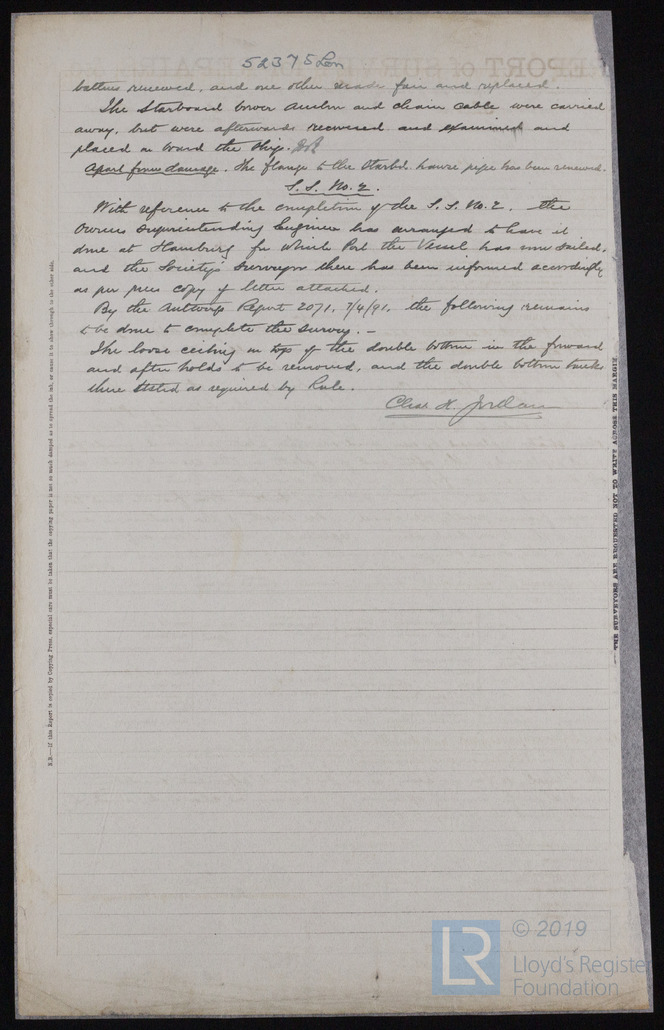 52375 Lon
battens renewed, and one other made fair and replaced.
The Starboard bower anchor and chain cable were carried
away, but were afterwards recovered and examined and
placed on board the ship.
Apart from damage. The flange to the Starbd. hawse pipe has been renewed.
S.S. No. 2.
With reference to the completion of the S.S. No. 2, the
Owners Superintending Engineer has arranged to have it
done at Hamburg for which Port the Vessel has now sailed,
and the Society's Surveyors there has been informed accordingly
as per press copy of letter attached.
By the Antwerp Report 2071. 7/4/91, the following remains
to be done to complete the survey. —
The loose ceiling on top of the double bottom in the forward
and after holds to be removed, and the double bottom tanks
there tested as required by Rule.
Chas H. Jordan
N.B.—If this Report is copied by Copying Press, especial care must be taken that the copying paper is not so much damped as to spread the ink, or cause it to show through to the other side.
THE SURVEYORS ARE REQUESTED NOT TO WRITE ACROSS THIS MARGIN
REPORT of SURVEY
REPAIRS
LR
© 2019
Lloyd's Register
Foundation